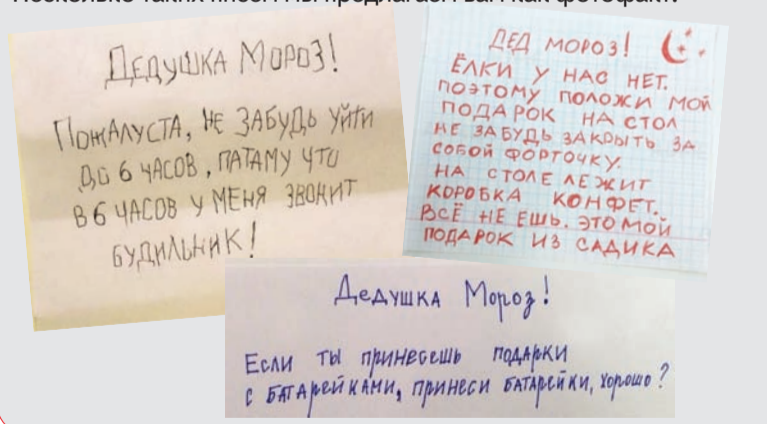 Несколько таких писем мы предлагаем вам как фотофакт.
Дедушка Мороз!
Пожалуста, не забудь уйти
до 6 часов, патаму что
в 6 часов у меня звонит
будильник!
ДЕД МОРОЗ!
ЁЛКИ У НАС НЕТ.
ПОЭТОМУ ПОЛОЖИ МОЙ
ПОДАРОК НА СТОЛ
НЕ ЗАБУДЬ ЗАКРЫТЬ ЗА
СОБОЙ ФОРТОЧКУ.
НА СТОЛЕ ЛЕЖИТ
КОРОБКА КОНФЕТ.
ВСЁ НЕ ЕШЬ. ЭТО МОЙ
ПОДАРОК ИЗ САДИКА
Дедушка Мороз!
Если ты принесешь подарки
с батарейками, принеси батарейки, хорошо?